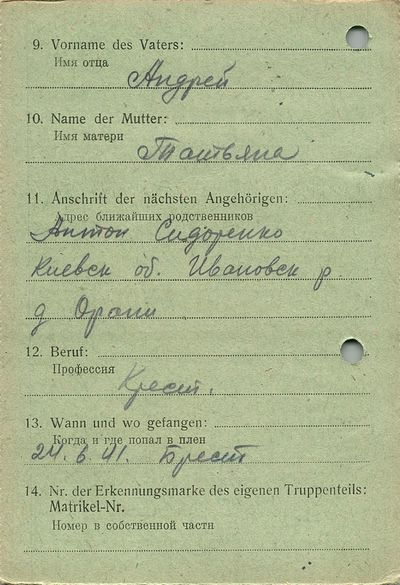 9. Vorname des Vaters:
Имя отца
Андрей
10. Name der Mutter:
Имя матери
Татьяна
11. Anschrift der nächsten Angehörigen:
Адрес ближайших родственников
Антон Сидоренко
Киевск об. Ивановск р.
д
12. Beruf:
Профессия
Крест.
13. Wann und wo gefangen:
Когда и где попал в плен
24.6.41. Брест
14. Nr. der Erkennungsmarke des eigenen Truppenteils:
Matrikel-Nr.
Номер в собственной части